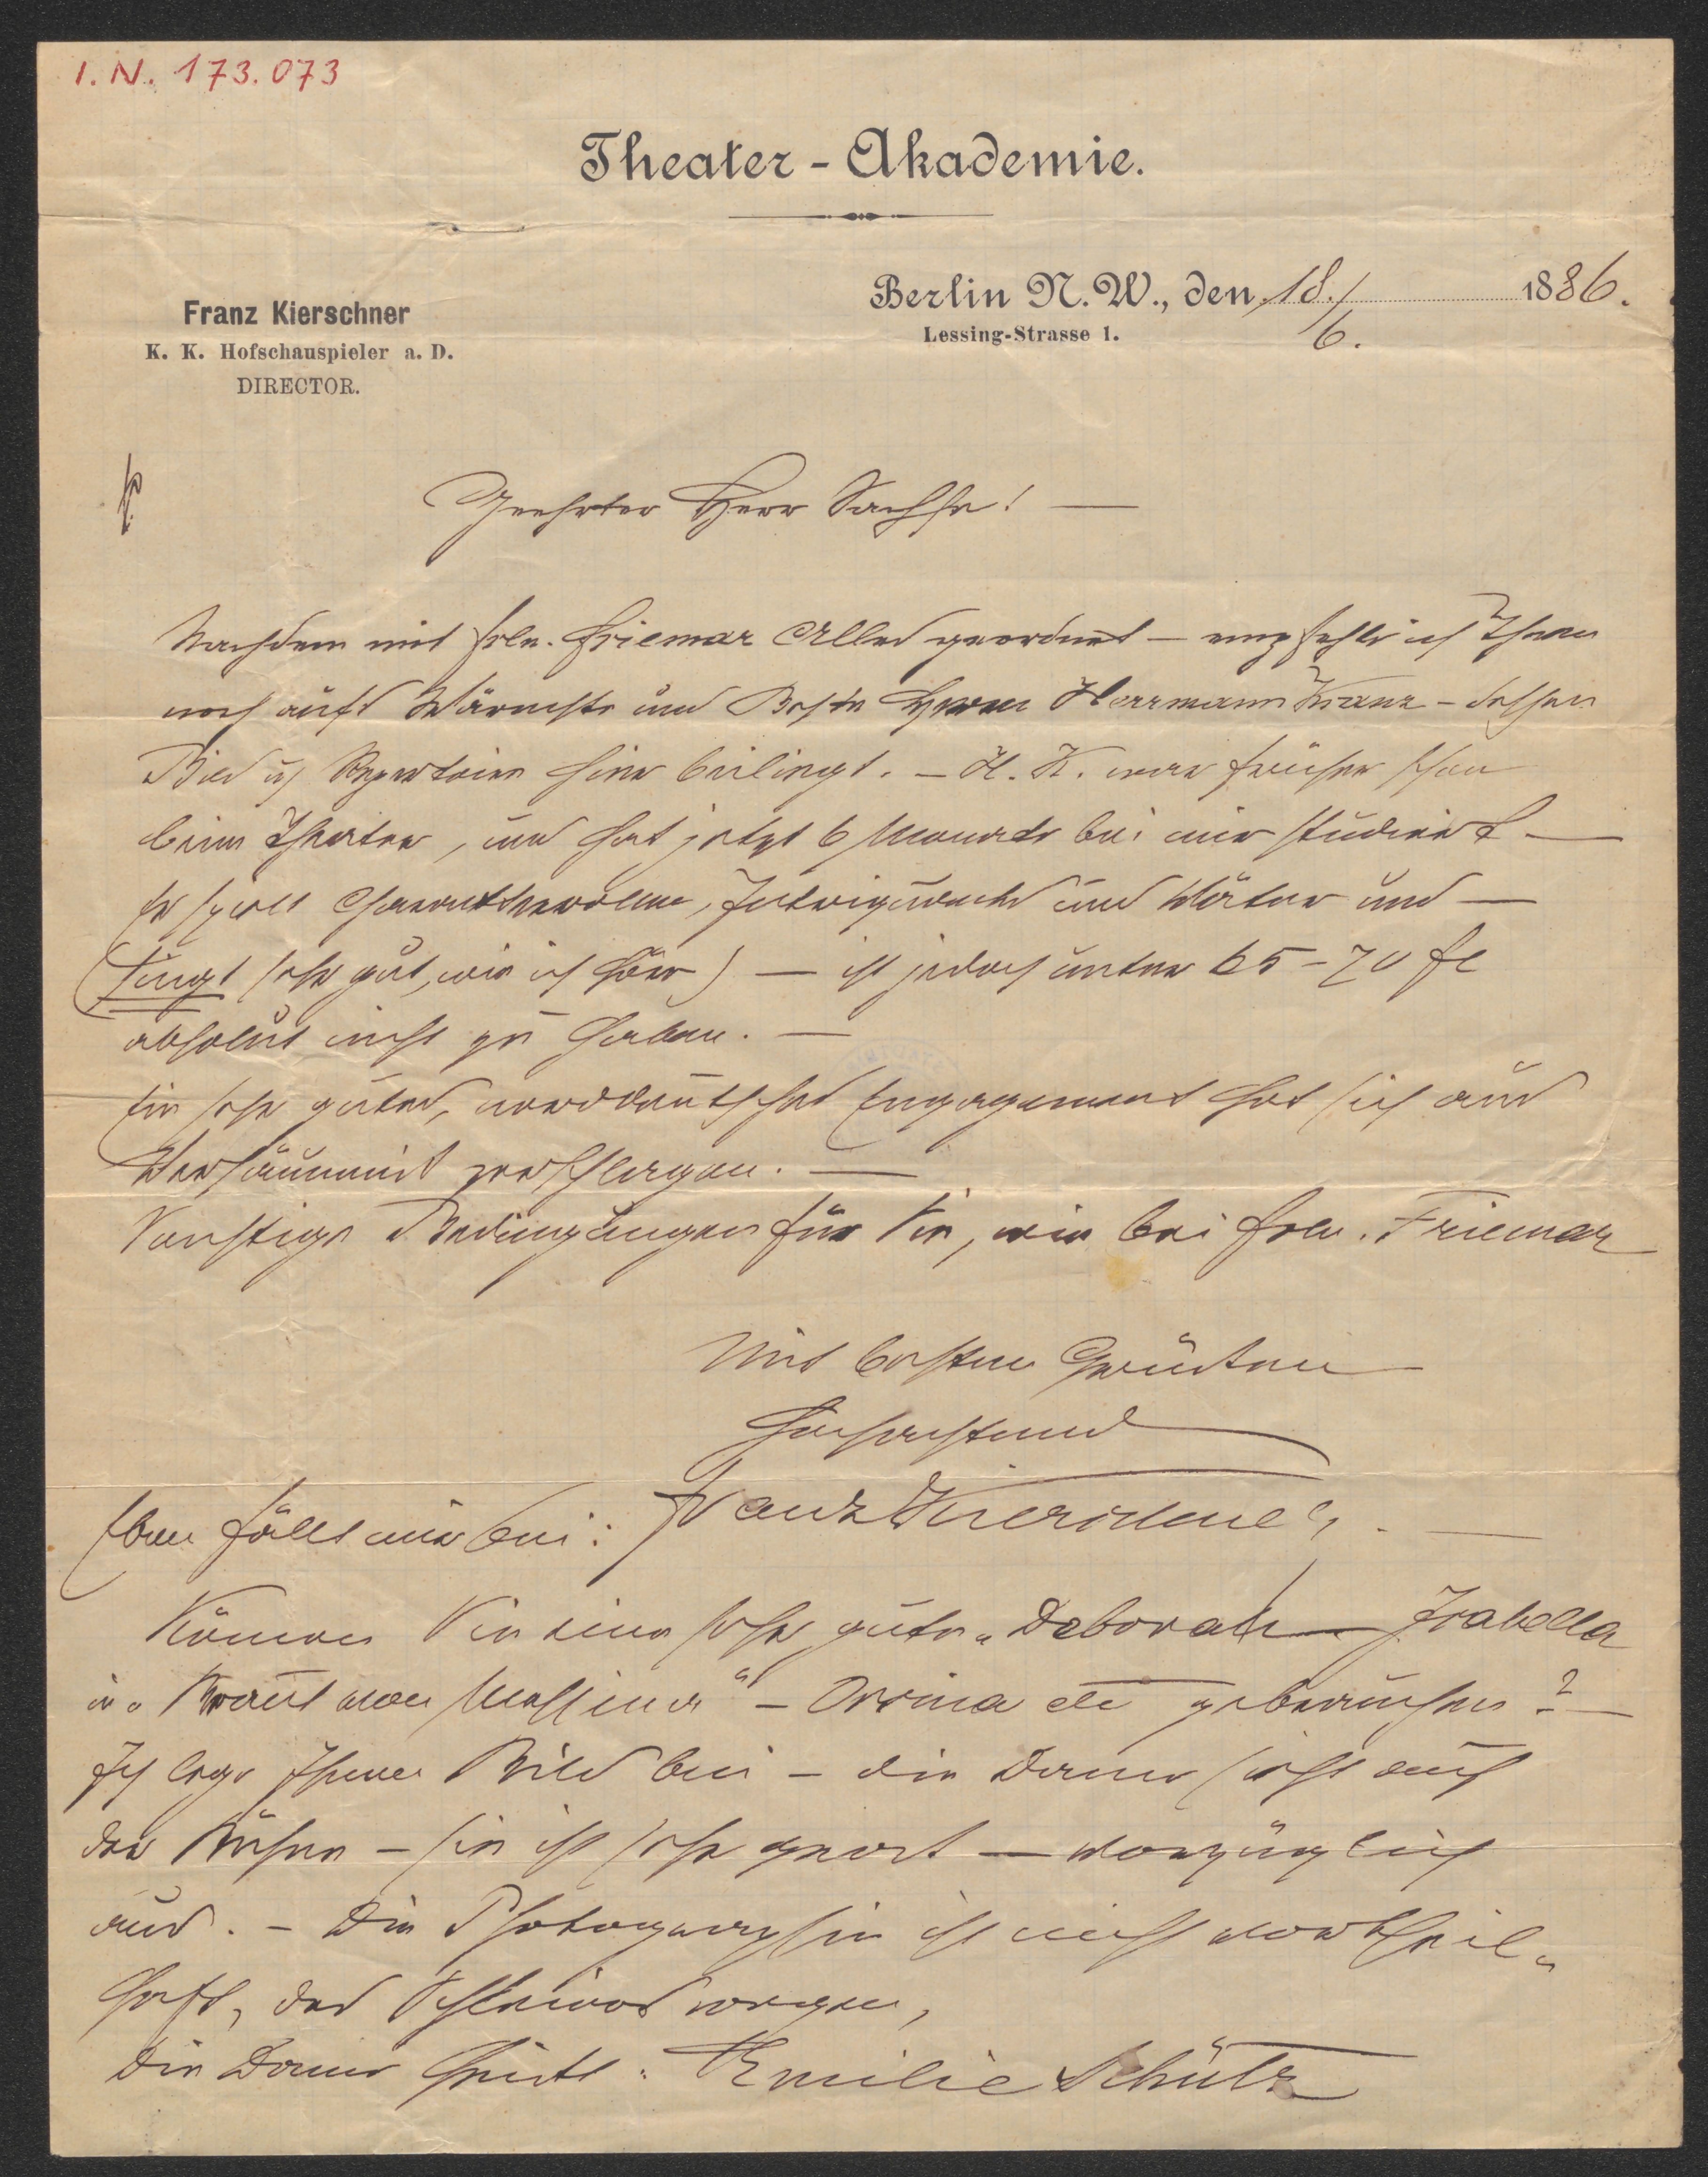 I. N. 173.073
Theater-Akademie.
Berlin N. W., den 18./6. 1886.
Lessing-Strasse 1.
Franz Kierschner
K. K. Hofschauspieler a. D.
DIRECTOR.
Geehrter Herr Sachse! —
Nachdem mit Frln. Friemar Alles geordnet — empfehle ich Ihnen
noch aufs Wärmste und Beste Herrn Herrmann Kranz — dessen
Bild u Repertoire hier beiliegt. — H. K. war früher schon
beim Theater, und hat jetzt 6 Monate bei mir studiert —
Er spielt Charakterrollen, Intriguants und Väter und —
(singt sehr gut, wie ich höre) — ist jedoch unter 65–70 fl
absolut nicht zu haben. —
Ein sehr gutes, norddeutsches Engagement hat sich aus
Versäumniß zerschlagen. —
Sonstige Bedingungen für Sie, wie bei Frln. Friemar
Mit besten Grüßen
Hochachtend
Franz Kierschner. —
Eben fällt mir bei:
Können Sie eine sehr gute „Deborah — Isabella
in „Braut von Messina" — Orsina etc gebrauchen? —
Ich lege Ihnen Bild bei — die Dame sieht auf
der Bühne — sie ist sehr — vorzüglich
aus. — Die Photographie ist nicht vortheil-
haft, des wegen,
Die Dame heißt: Emilie Schütz